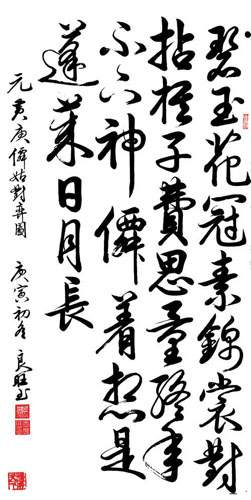 碧玉花冠素錦裳對
拈棋子費思量終年
不下神僊着想是
蓬萊日月長
元黄庚僊姑對弈圖 庚寅初冬良旺书